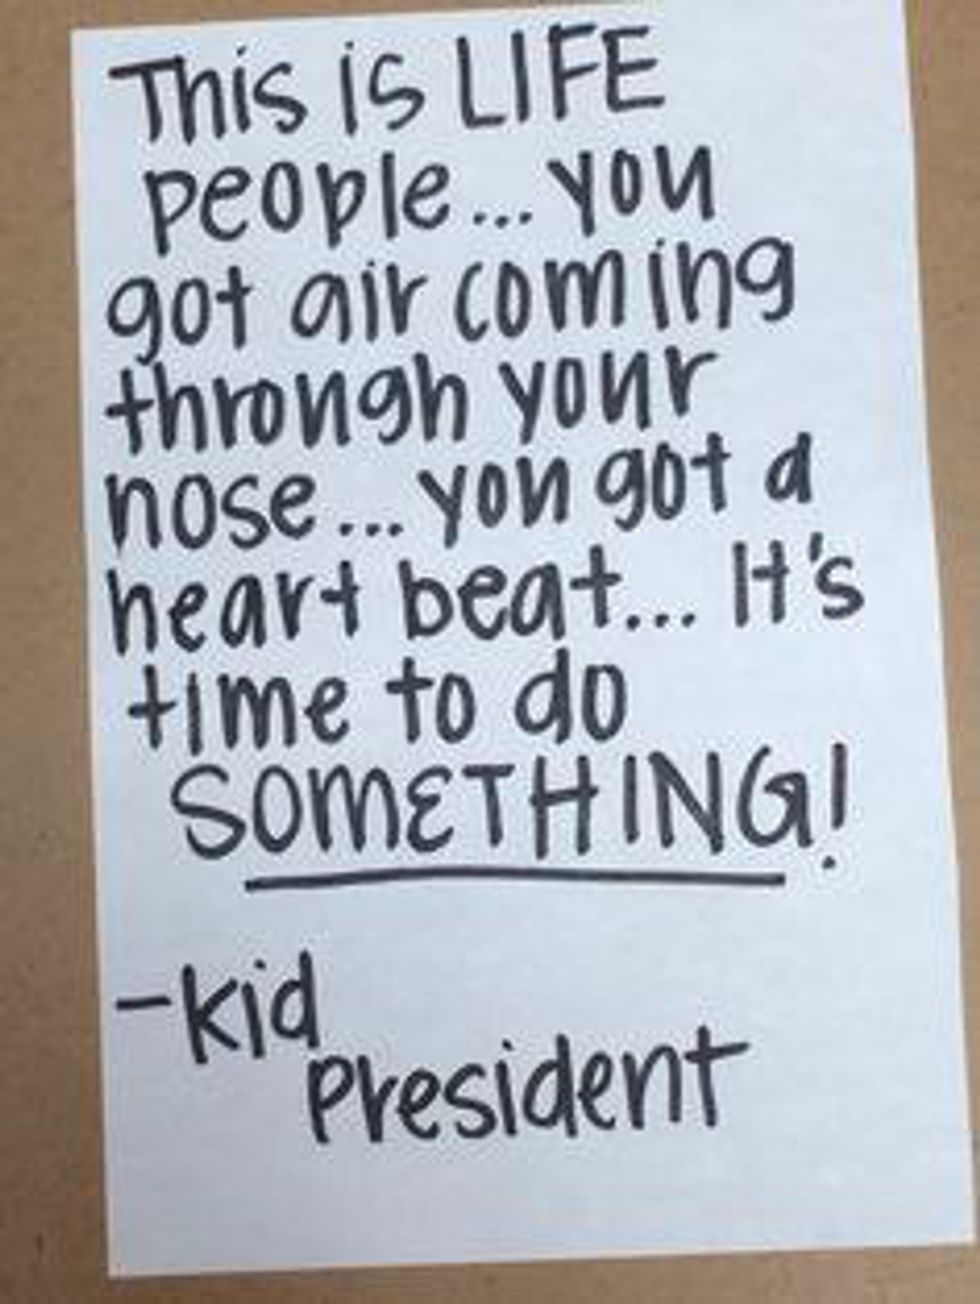 This is LIFE
people... you
got air coming
through your
nose... you got a
heart beat... It's
time to do
SOMETHING!
-kid
president